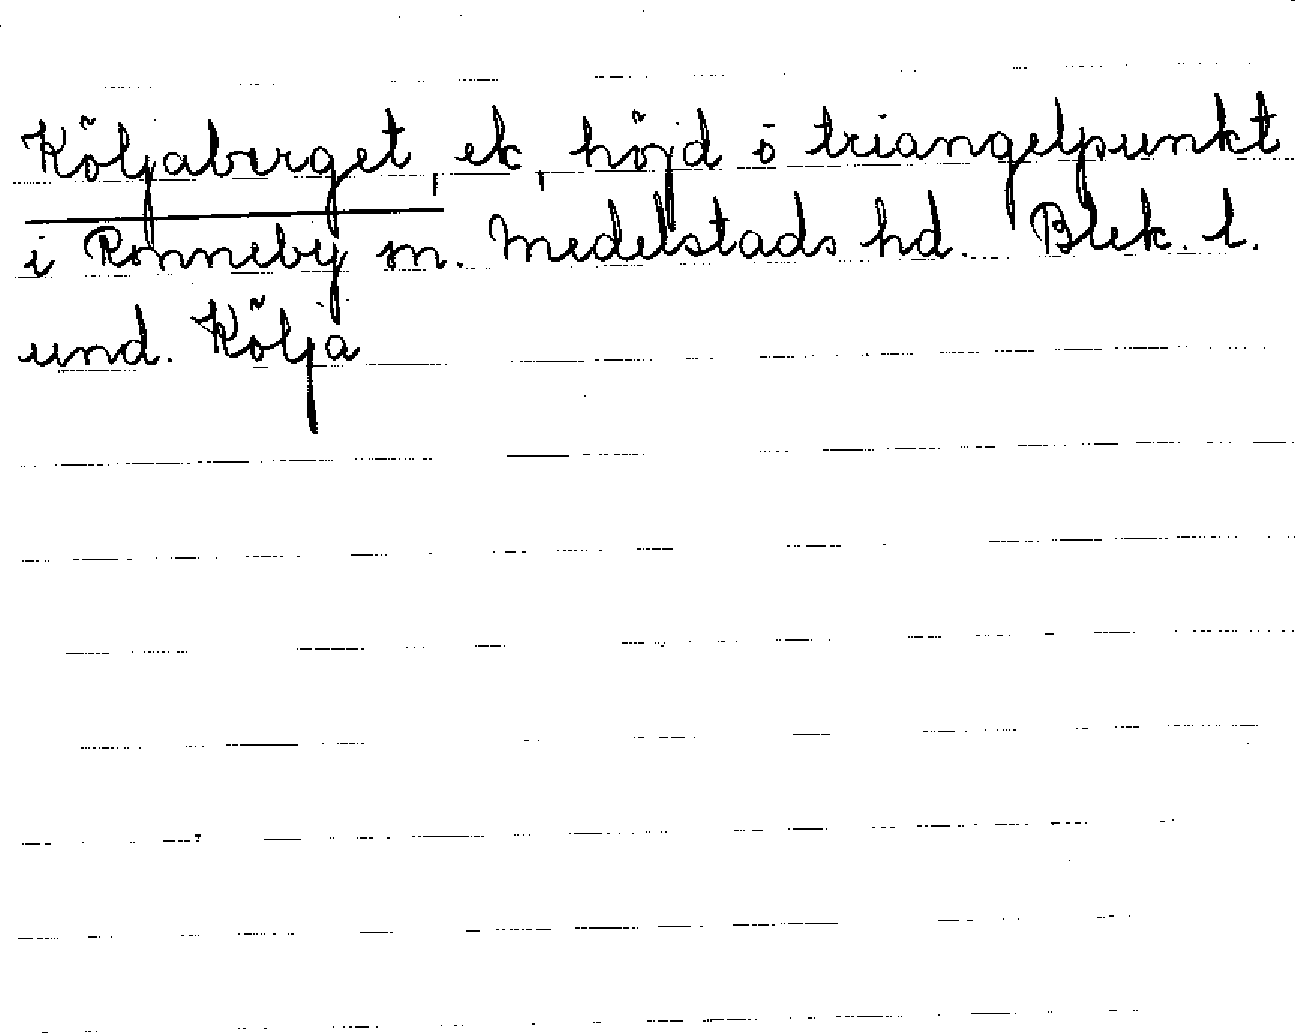 Kõljaberget, ek, höjd o triangelpunkt
i Ronneby m. Medelstads hd. Blek. l.
und. Kõlja